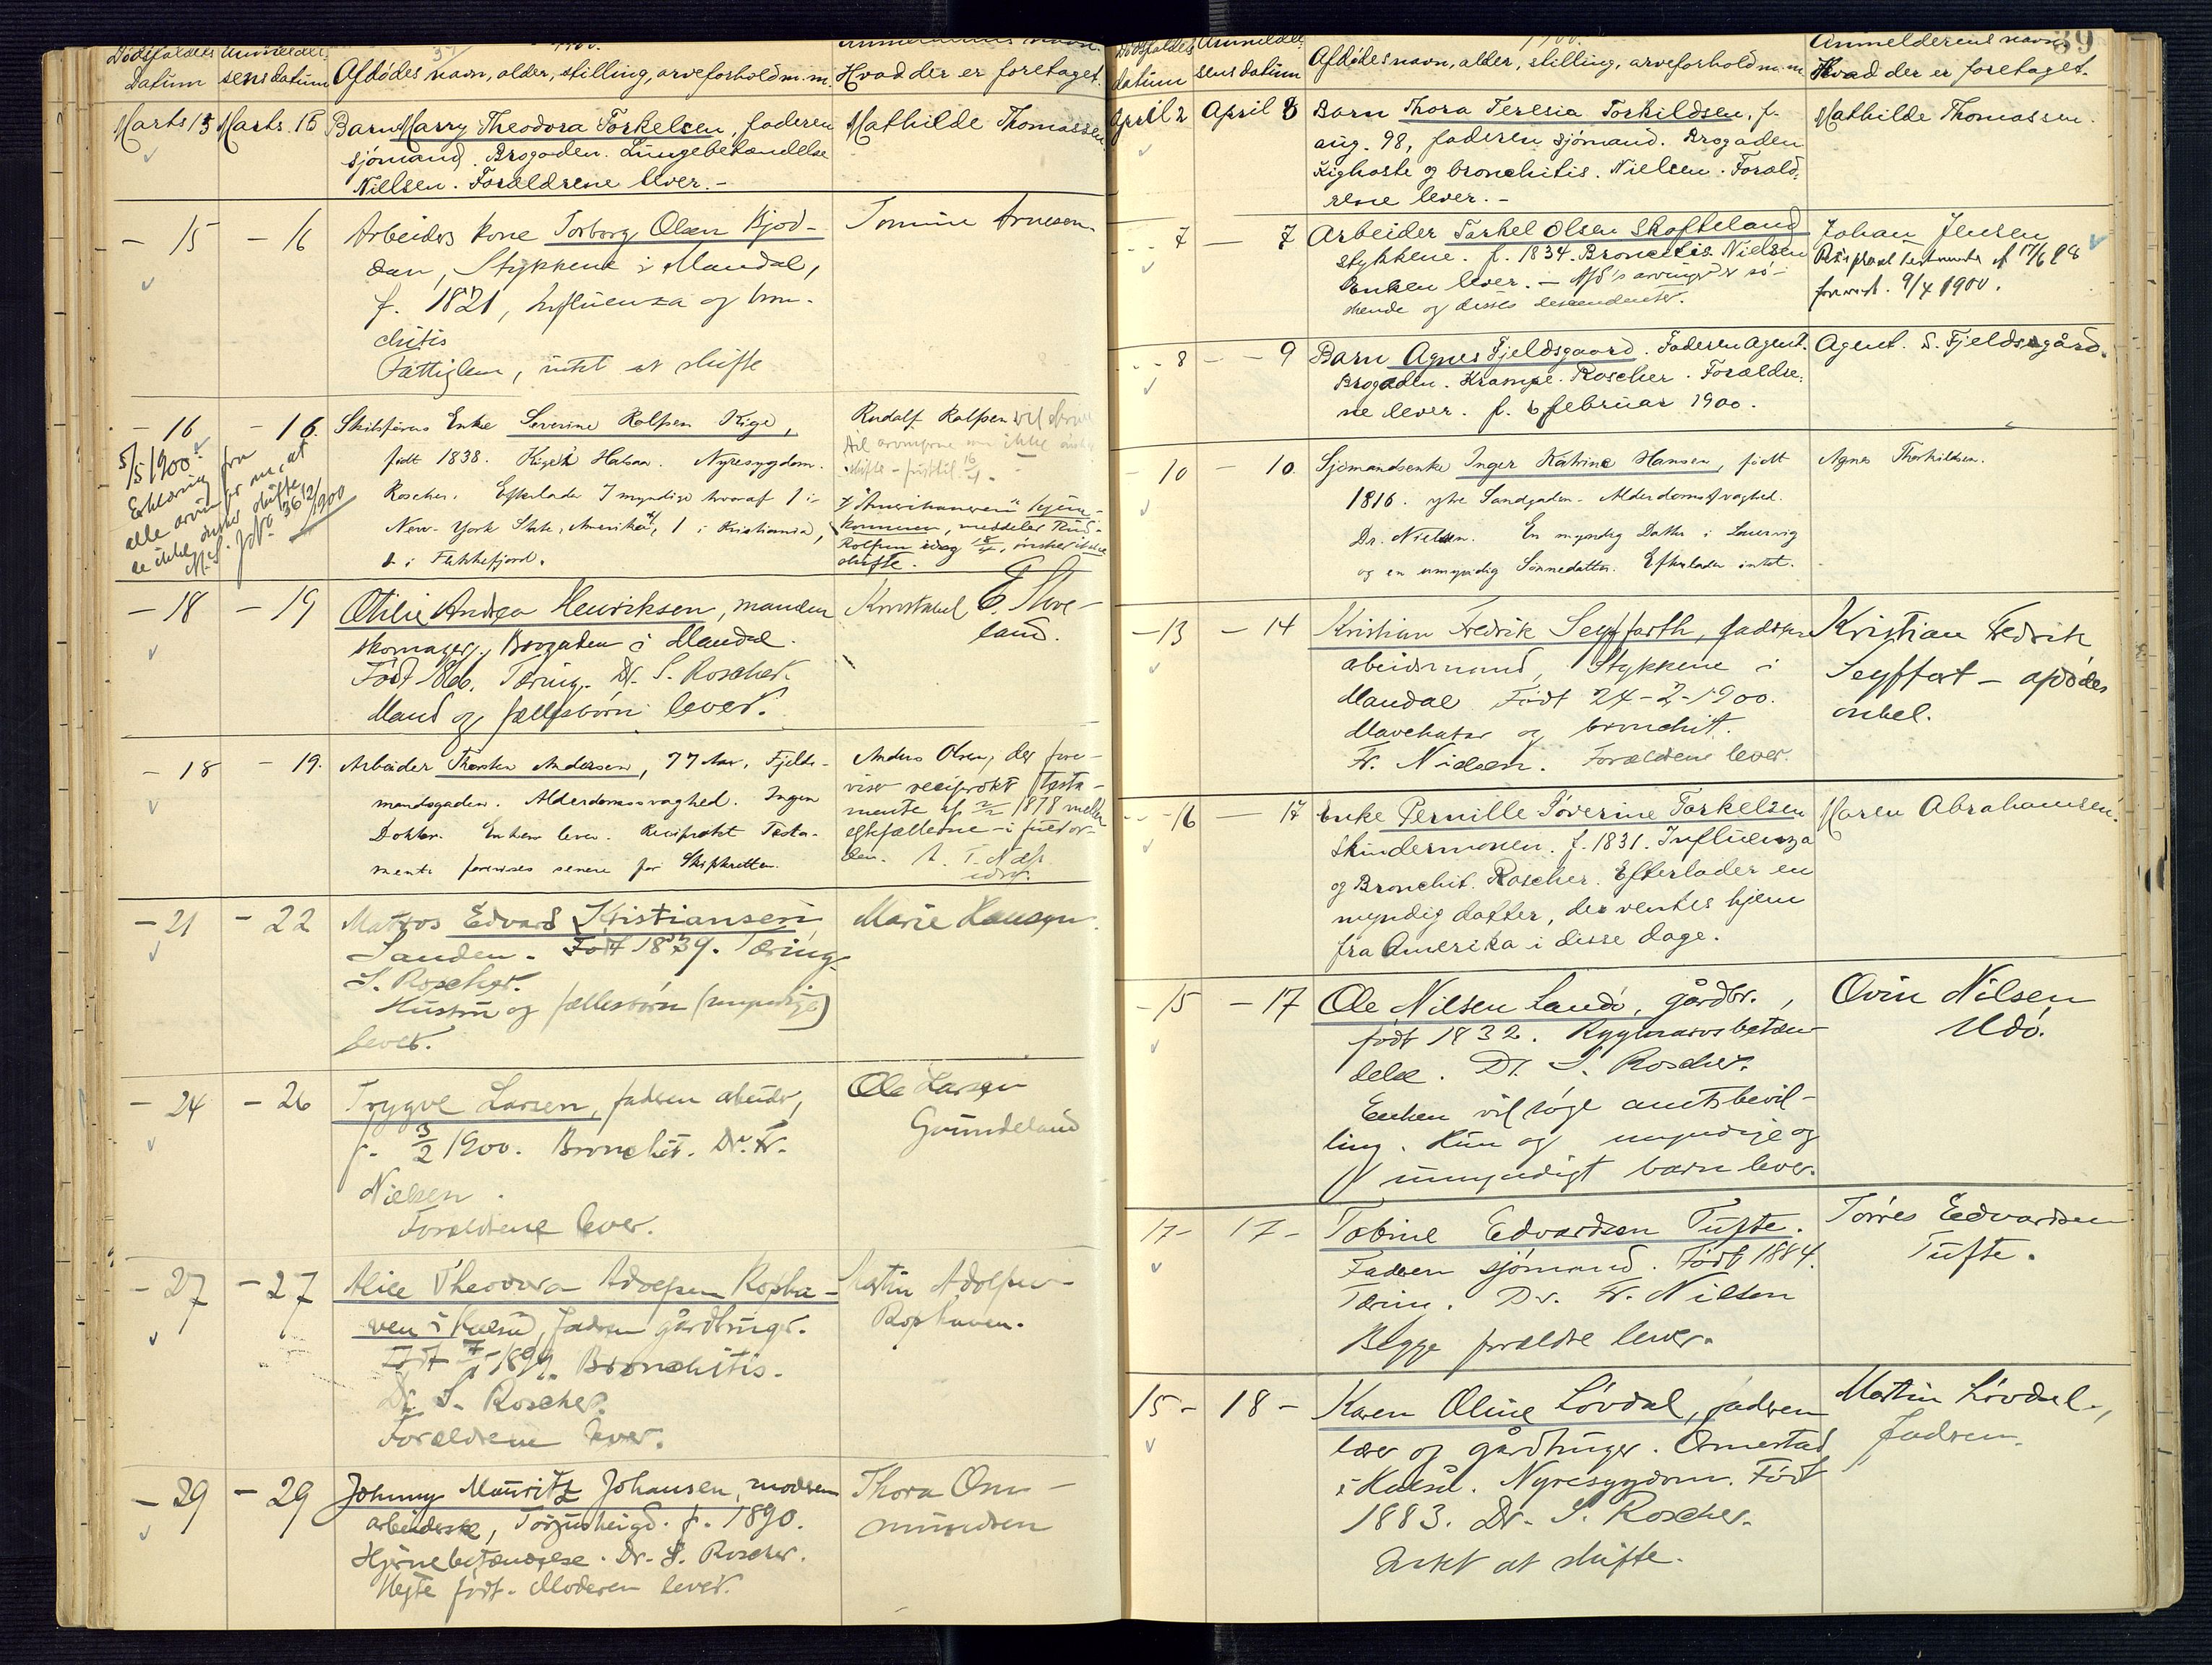 Dødsfaldets Anmeldel- 1900. Anmelderens navn.
Datum sens datum Afdødes navn, alder, stilling, arveforhold m. m. Hvad der er foretaget.
Marts 13 Marts 15 Barn Harry Theodora Torkelsen, faderen Mathilde Thomassen
sjømand. Brogaden. Lungebetændelse
Nielsen. Forældrene lever. -
- 15 - 16 Arbeiders kone Torborg Olsen Kjod- Tomine Arnesen
dan, Stykkene i Mandal,
f. 1821, Influenza og bron-
chitis
Fattiglem, intet at skifte
- 16 - 16. Skibsførers Enke Severine Rolfsen Kige, Rudolf Rolfsen vil skrive
født 1838. Kige i Halsaa. Nyresygdom. til arvingerne om ikke ønske
skifte - frist til 16/4. -
Roscher. Efterlader 7 myndige hvoraf 1 i
New-York State, Amerika x), 1 i Kristiania,
1 i Flekkefjord.
x) "Amerikaneren" hjem-
kommen, meddeler Rud.
Rolfsen idag 18/4, ønsker ikke
skifte.
5/5 1900.
Erklæring fra
alle arvinger om, at
de ikke ønsker skifte
M.S. J.No 3612/1900
- 18 - 19 Otilie Andrea Henriksen, manden Konstabel E. Skove-
skomager, Brogaden i Mandal. land.
Født 1866. Tæring. Dr. S. Roscher.
Mand og fællesbørn lever.
- 18 - 19. Arbeider Thorsten Andersen, 77 Aar, Fjeld- Anders Olsen, der fore-
mandsgaden. Alderdomssvaghed. Ingen viser reciprokt testa-
Doktor. Enken lever. Reciprokt Testa- mente af 2/2 1878 mellem
mente forevises senere for Skifteretten. egtefællerne - i fuld or-
den.
- 21 - 22 Matros Edvard Kristiansen, Marie Hansen.
Sanden. - Født 1839. Tæring.
S. Roscher.
Hustru og fællesbørn (myndige)
lever.
- 24 - 26 Trygve Larsen, faderen arbeider, Ole Larsen
f. 3/2 1900. Bronchit. Dr. Fr. Grundeland
Nielsen.
Forældrene lever.
- 27 - 27 Alice Theodora Adolfsen Ropha- Martin Adolfsen
ven i Halsaa, faderen gårdbruger. Rophaven.
Født 1899. Bronchitis.
Dr. S. Roscher.
Forældrene lever.
- 29 - 29 Johnny Mauritz Johansen, moderen Thora Om-
arbeiderske, Torjusheigd. f. 1890. mundsen
Hjernebetændelse. Dr. S. Roscher.
Uegte født. Moderen lever.
39
Dødsfaldets Anmeldel- 1900. Anmelderens navn
datum sens datum Afdødes navn, alder, stilling, arveforhold m. m. Hvad der er foretaget.
April 2 April 3 Barn Thora Teresia Torkildsen, f. Mathilde Thomassen.
aug. 98, faderen sjømand. Brogaden
Kighoste og bronchitis. Nielsen. Foræld-
rene lever. -
- 7 - 7 Arbeider Tarkel Olsen Skofteland Johan Jensen
Stykkene. f. 1834. Bronchitis. Nielsen Reciprokt testamente af 17/6 98
Enken lever. - Afd's arvinger er sø- forevist. 9/4 1900.
skende og disses descendenter.
- 8 - 9 Barn Agnes Fjeldsgaard. Faderen Agent. Agent. S. Fjeldsgård.
Brogaden. Krampe. Roscher. Forældre-
ne lever. f. 6 februar 1900.
- 10 - 10. Sjømandsenke Inger Katrine Hansen, født Agnes Thorkildsen.
1816. ytre Sandgaden. Alderdomssvaghed.
Dr. Nielsen. En myndig Datter i Laurvig
og en umyndig Sønnedatter. Efterlader intet.
- 13 - 14 Kristian Fredrik Seyffarth, faderen Kristian Fredrik
abeidsmand, Stykkene i Seyffart - afdødes
Mandal. Født 24-2-1900. onkel.
Mavekatar og bronchit.
Fr. Nielsen. Forældrene lever.
- 16 - 17 Enke Pernille Søverine Torkelsen Maren Abrahamsen.
Skindermonen. f. 1831. Influenza
og Bronchit. Roscher. Efterlader en
myndig datter, der ventes hjem
fra Amerika i disse dage.
- 15 - 17 Ole Nilsen Landø, gårdbr., Ovin Nilsen
født 1832. Rygmarvsbetæn- Udø.
delse. Dr. S. Roscher.
Enken vil søge amtsbevil-
ling. Hun og myndige og
1 umyndigt barn lever.
17 - 17 - Tobine Edvardsen Tufte. Tørres Edvardsen
Faderen sjømand. Født 1884. Tufte.
Tæring. Dr. Fr. Nilsen
Begge forældre lever.
15 - 18 - Karen Oline Løvdal, faderen Martin Løvdal,
lærer og gårdbruger. Omestad Faderen.
i Halså. Nyresygdom. Født
1883. Dr. S. Roscher.
Intet at skifte.